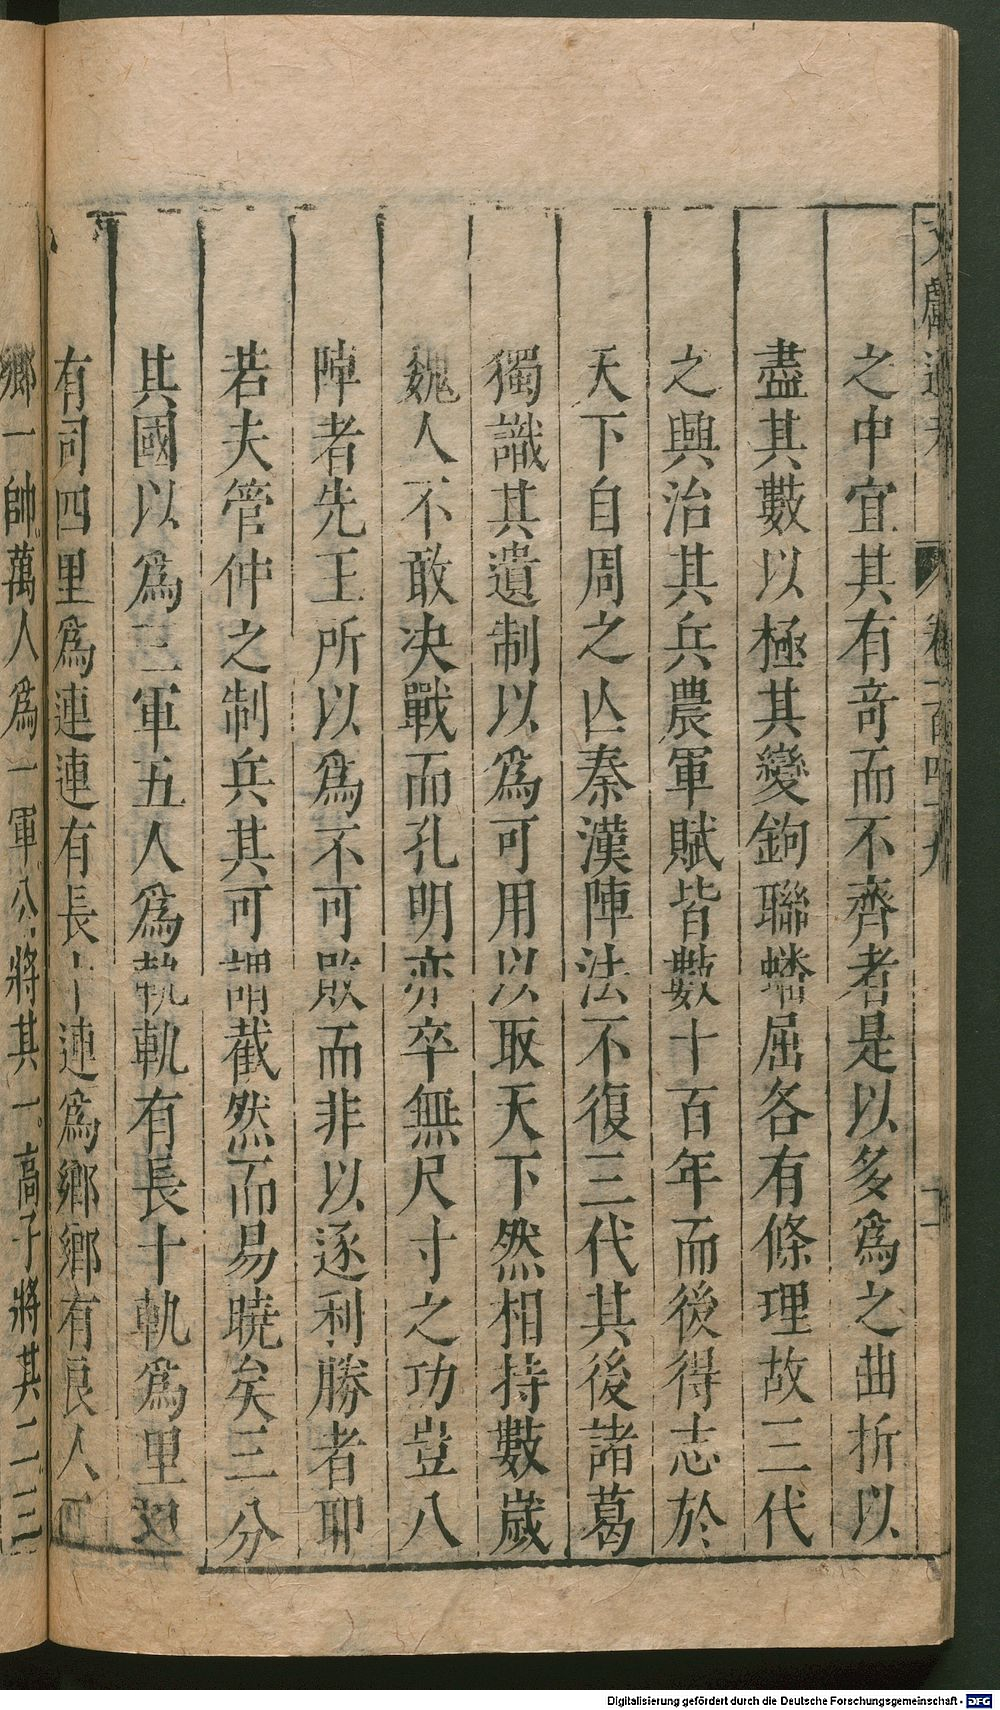 文獻通考 卷一百四十九
之中宜其有奇而不齊者是以多爲之曲折以
盡其數以極其變鉤聯蟠屈各有條理故三代
之興治其兵農軍賦皆數十百年而後得志於
天下自周之亾秦漢陣法不復三代其後諸葛
獨識其遺制以爲可用以取天下然相持數歲
魏人不敢决戰而孔明亦卒無尺寸之功豈八
陣者先王所以爲不可敗而非以逐利勝者耶
若夫管仲之制兵其可謂截然而易曉矣三分
其國以爲三軍五人爲軌軌有長十軌爲里里
有司四里爲連連有長十連爲鄉鄉有良人五
鄉一帥萬人爲一軍公將其一高子將其二三
Digitalisierung gefördert durch die Deutsche Forschungsgemeinschaft - DFG